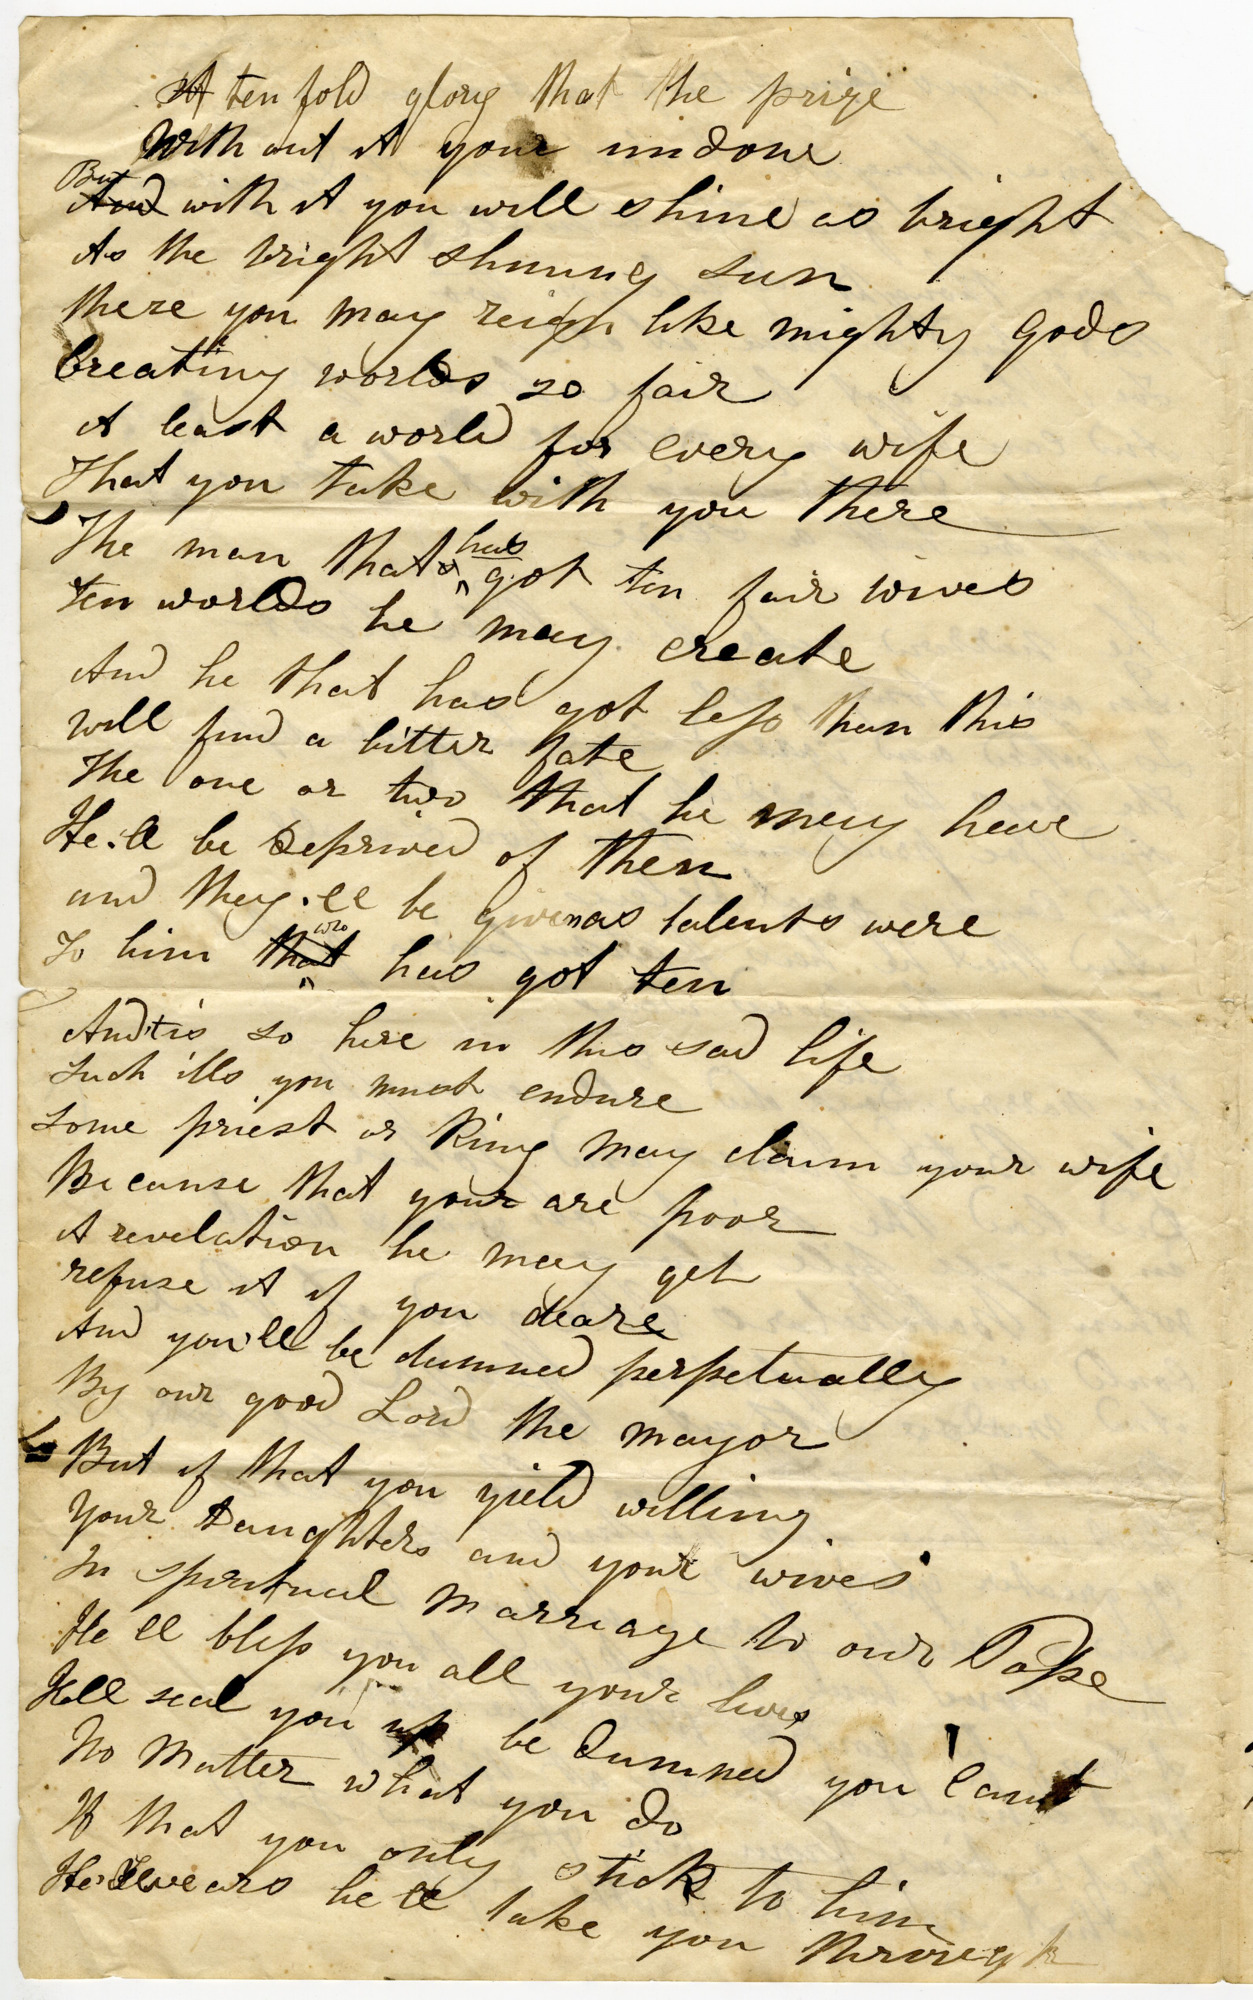 A ten fold glory that the prize
Without it your undone
But
And with it you will shine as bright
As the bright shining sun
there you may reign like mighty Gods
Creating worlds so fair
At least a world for every wife
That you take with you there
The man thats has got ten fair wives
ten worlds he may create
And he that has got less than this
will find a bitter fate
The one or two that he may have
He'll be deprived of them
and they'll be given as talents were
To him that who has got ten
And tis so here in this sad life
Such ills you must endure
Some priest or King may claim your wife
Because that your are poor
A revelation he may get
refuse it if you deare
And you'll be damned perpetually
By our good Lord the mayor
But if that you yield willing
Your daughters and your wives
In spiritual marriage to our Pope
He ll bless you all your lives
Hell seal you up be damned you can't
No Matter what you do
If that you only stick to him
He Swears he ll take you through